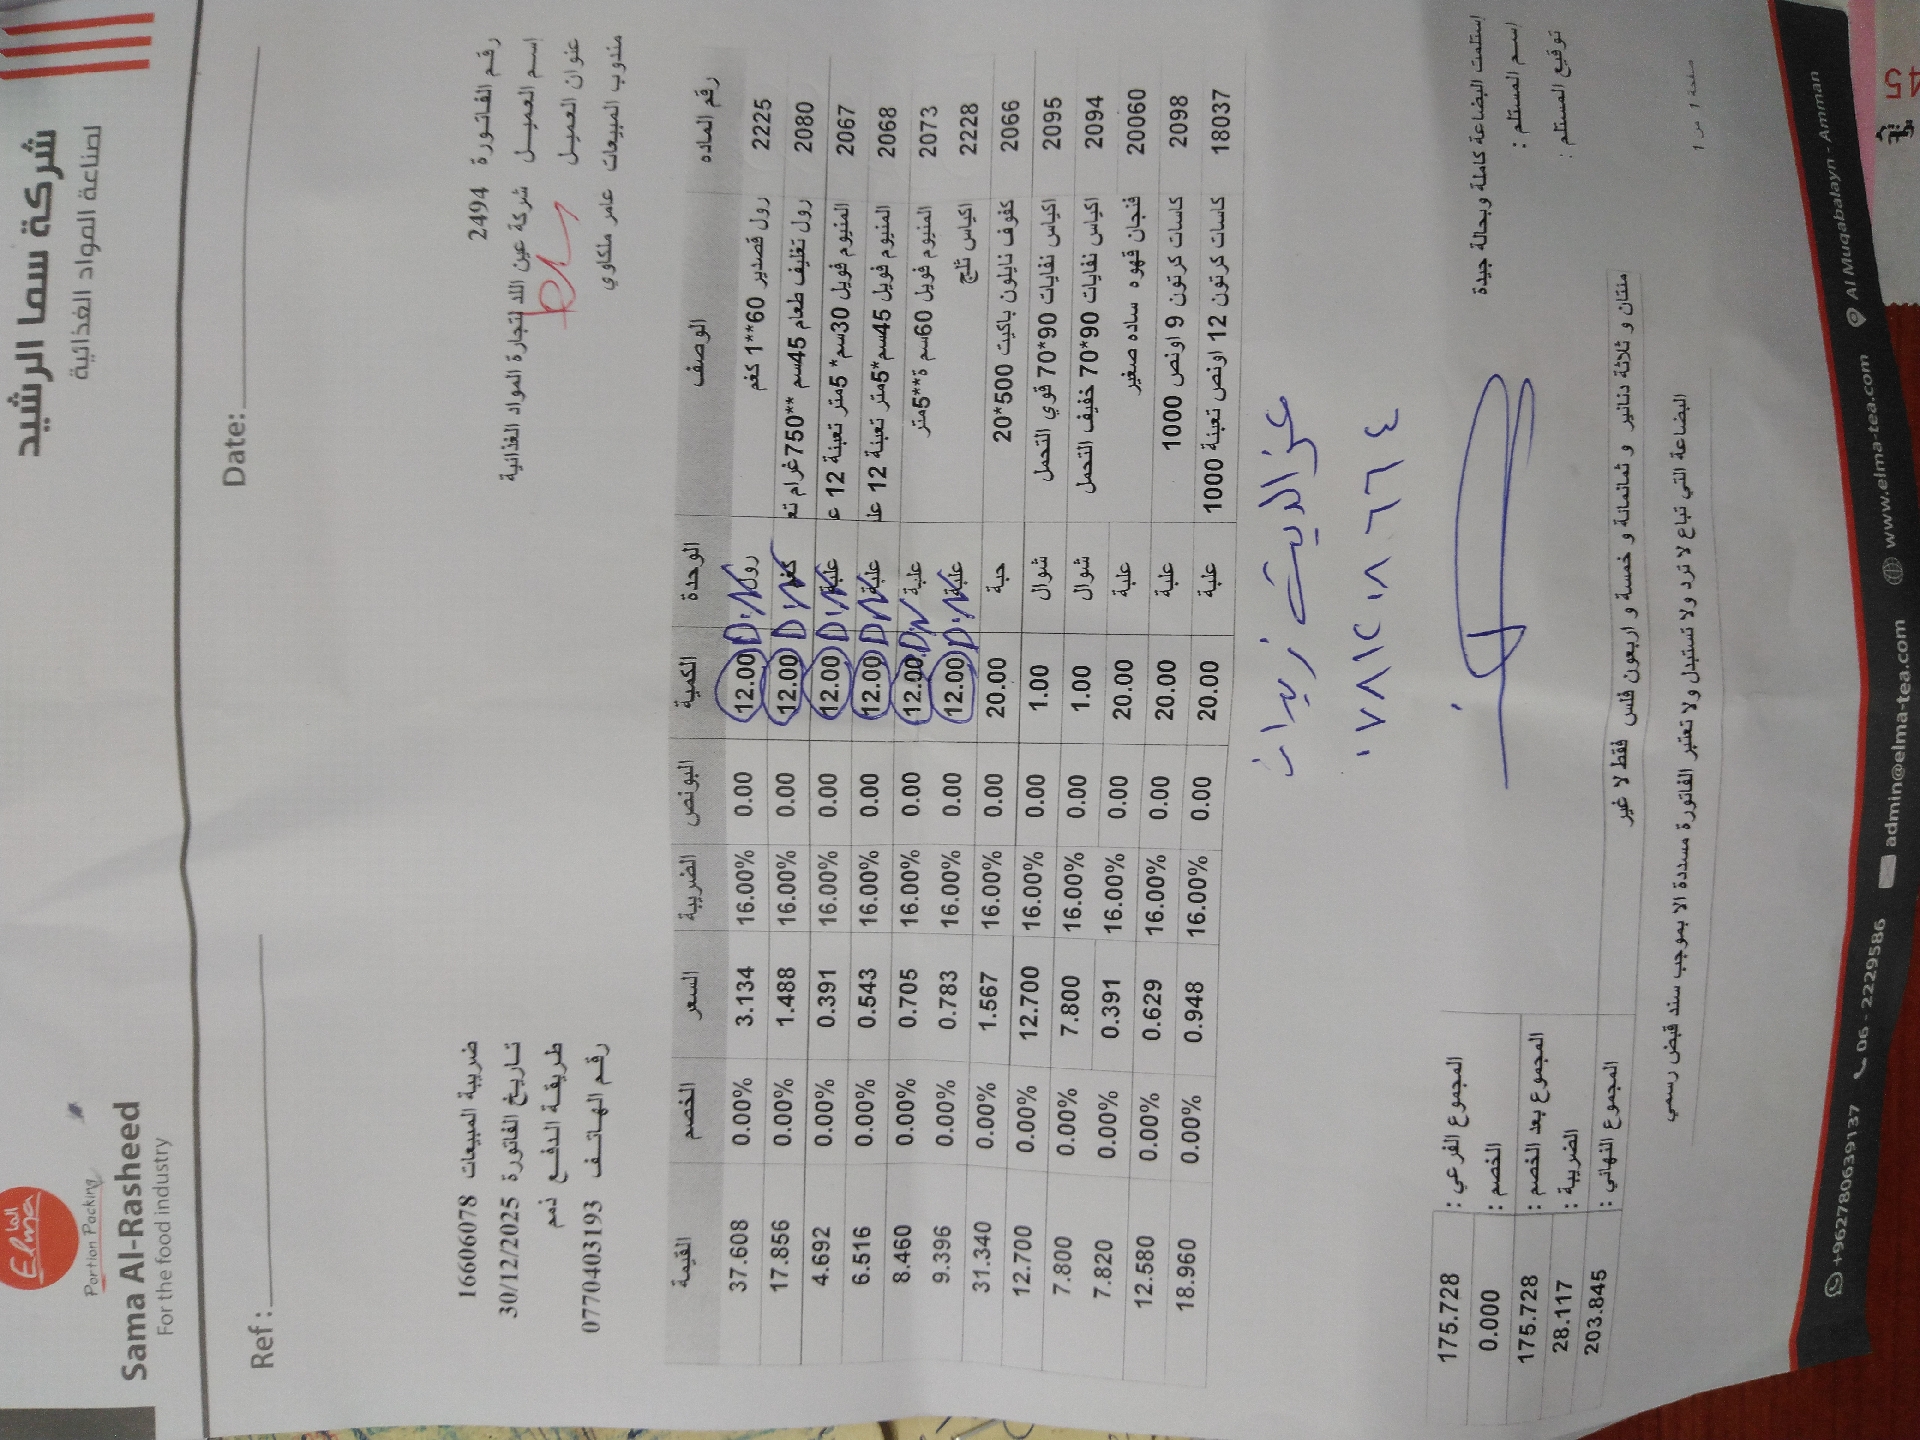 Elma الما
Portion Packing
Sama Al-Rasheed
For the food industry
شركة سما الرشيد
لصناعة المواد الغذائية
Ref: Date:
رقم الفاتورة 2494 ضريبة المبيعات 16606078
إسم العميل شركة عين اللد لتجارة المواد الغذائية تاريخ الفاتورة 30/12/2025
عنوان العميل طريقة الدفع ذمم
مندوب المبيعات عامر ملكاوي رقم الهاتف 0770403193
رقم الماده الوصف الوحدة الكمية البونص الضريبة السعر الخصم القيمة
2225 رول قصدير 60**1 كغم رول 12.00 0.00 16.00% 3.134 0.00% 37.608
2080 رول تغليف طعام 45سم **750غرام تع كغم 12.00 0.00 16.00% 1.488 0.00% 17.856
2067 المنيوم فويل 30سم* 5متر تعبئة 12 ع علبة 12.00 0.00 16.00% 0.391 0.00% 4.692
2068 المنيوم فويل 45سم*5متر تعبئة 12 عل علبة 12.00 0.00 16.00% 0.543 0.00% 6.516
2073 المنيوم فويل 60سم ة**5متر علبة 12.00 0.00 16.00% 0.705 0.00% 8.460
2228 اكياس ثلج علبة 12.00 0.00 16.00% 0.783 0.00% 9.396
2066 كفوف نايلون باكيت 500*20 حبة 20.00 0.00 16.00% 1.567 0.00% 31.340
2095 اكياس نفايات 90*70 قوي التحمل شوال 1.00 0.00 16.00% 12.700 0.00% 12.700
2094 اكياس نفايات 90*70 خفيف التحمل شوال 1.00 0.00 16.00% 7.800 0.00% 7.800
20060 فنجان قهوه ساده صغير علبة 20.00 0.00 16.00% 0.391 0.00% 7.820
2098 كاسات كرتون 9 اونص 1000 علبة 20.00 0.00 16.00% 0.629 0.00% 12.580
18037 كاسات كرتون 12 اونص تعبئة 1000 علبة 20.00 0.00 16.00% 0.948 0.00% 18.960
عز الدين زيدات
٠٧٨١٢٠٨٦٦٤
إستلمت البضاعة كاملة وبحالة جيدة
إسم المستلم :
توقيع المستلم :
المجموع الفرعي : 175.728
الخصم : 0.000
المجموع بعد الخصم : 175.728
الضريبة : 28.117
المجموع النهائي : 203.845
مئتان و ثلاثة دنانير و ثمانمائة و خمسة و اربعون فلس فقط لا غير
البضاعة التي تباع لا ترد ولا تستبدل ولا تعتبر الفاتورة مسددة الا بموجب سند قبض رسمي
صفحة 1 من 1
+962780639137 06 - 2229586 admin@elma-tea.com www.elma-tea.com Al Muqabalayn - Amman
45